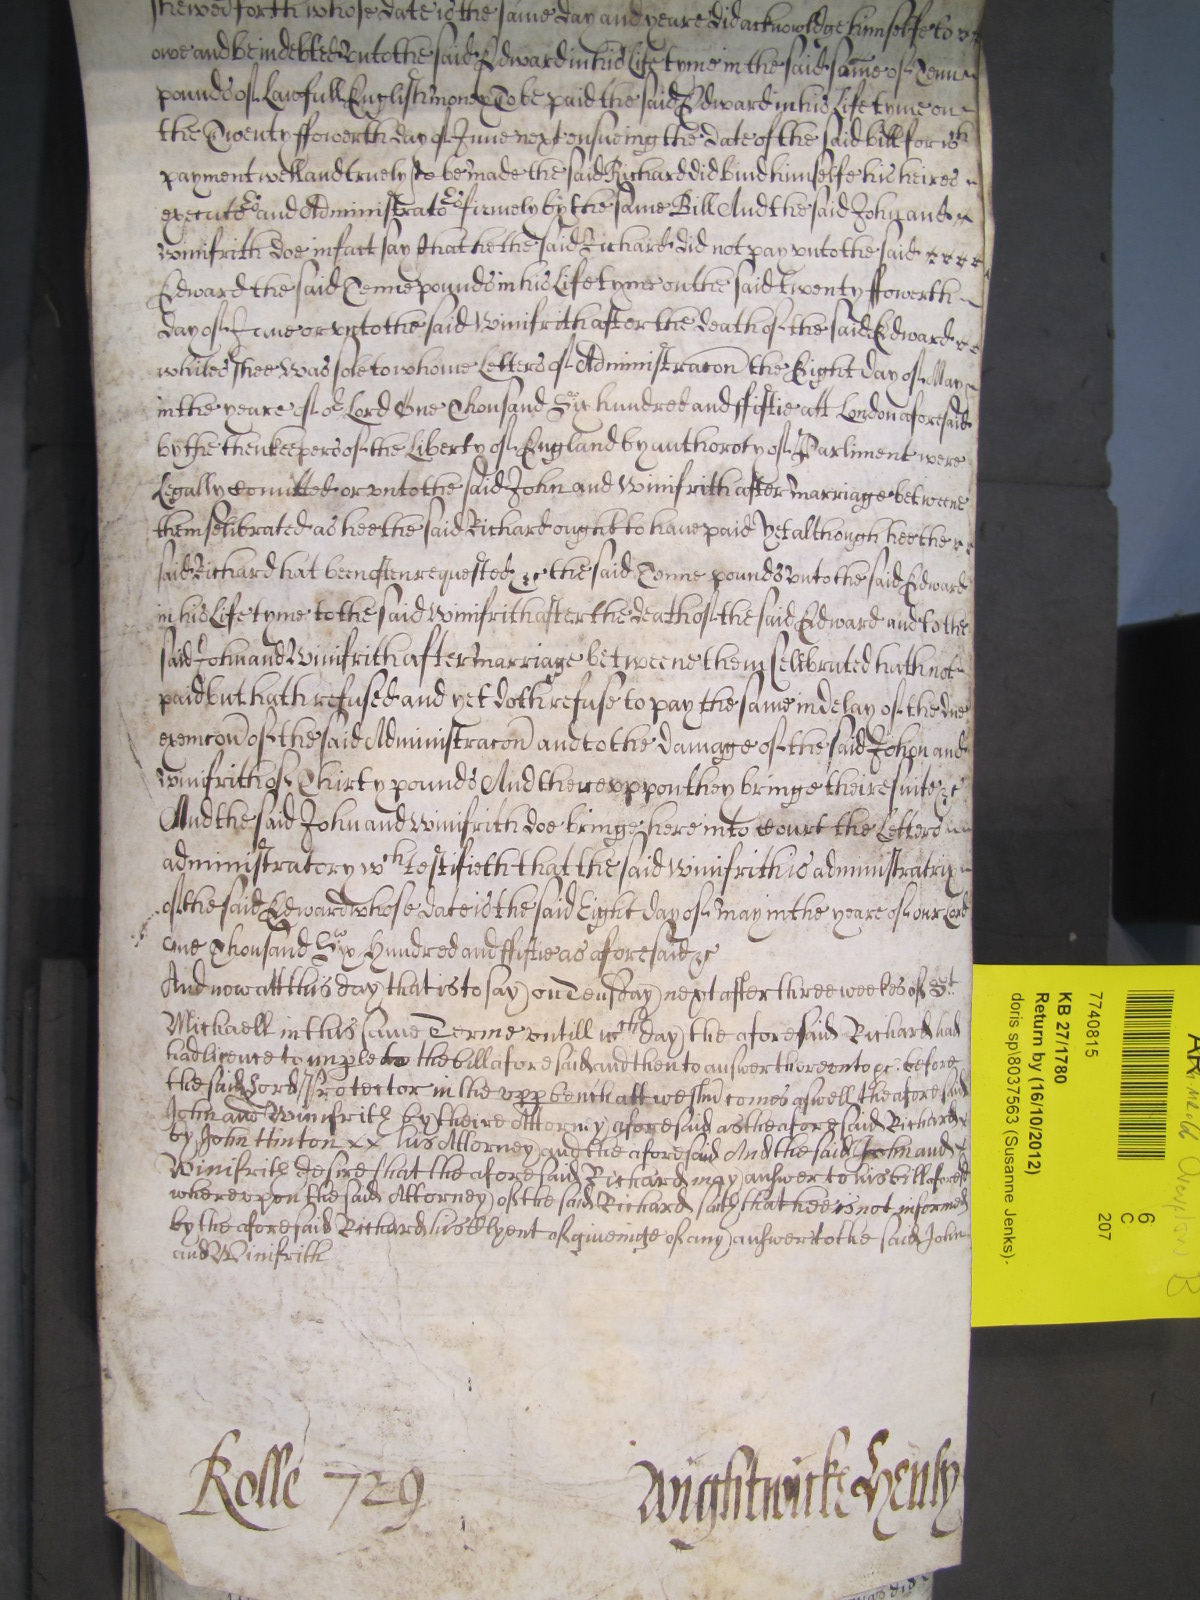 shewed forth whose date is the same day and yeare did acknowldge himselfe to
owe and be indebted unto the said Edward in his Life tyme in the said same of Tenn
pounds of Lawfull English money To be paid the said Edward in his Life tyme on
the Twenty ffowerth day of June next ensueing the date of the said bill for wch
payment well and truely to be made the said Richard did bind himselfe his heires
executors and Administrators firmely by the same Bill And the said John and
Winifrith doe in fact say that he the said Richard did not pay unto the said
Edward the said Tenne pounds in his Life tyme on the said twenty ffowerth
day of June or unto the said Winifrith after the death of the said Edward
whiles shee was sole to whome Letters of Administracon the Eight day of May
in the yeare of or Lord One Thousand Six hundred and ffiftie att London aforesaid
by the then keepers of the Liberty of England by authoroty of Parliment were
Legally comitted or unto the said John and Winifrith after marriage betweene
them selibrated as hee the said Richard ought to have paid Yet although hee the
said Richard hat been often requested &c the said Tenne pounds unto the said Edward
in his Life tyme to the said Winifrith after the death of the said Edward and to the
said John and Winifrith after marriage betweene them selibrated hath not
paid but hath refused and yet doth refuse to pay the same in delay of the due
execucon of the said Administracon and to the damage of the said John and
Winifrith of Thirty pounds And thereuppon they bringe theire suite &c
And the said John and Winifrith doe bringe here into Court the Letters
administratory wch testifieth that the said Winifrith is administratrix
of the said Edward whose date is the said Eight day of may in the yeare of our Lord
One Thousand Six Hundred and ffiftie as aforesaid &c
And now att this day that is to say on Teusday next after three weekes of St
Michaell in this same Terme untill wch day the aforesaid Richard had
had licence to imple to the bill aforesaid and then to answer thereunto &c before
the said Lord Protector in the upp bench att westm comes aswell the aforesaid
John and Winifrith by theire Attorney aforesaid as the aforesaid Richard
by John Hinton x x his Attorney and the aforesaid And the said John and
Winifrith desire that the aforesaid Richard may answer to his bill aforesd
whereupon the said Attorney of the said Richard saith that hee is not informed
by the aforesaid Richard his Clyent of giueinge of any answer to the said John
and Winifrith
Rolle 729 Wightwicke Henly
7740815
KB 27/1780
Return by (16/10/2012)
doris sp\8037563 (Susanne Jenks)
6
C
207